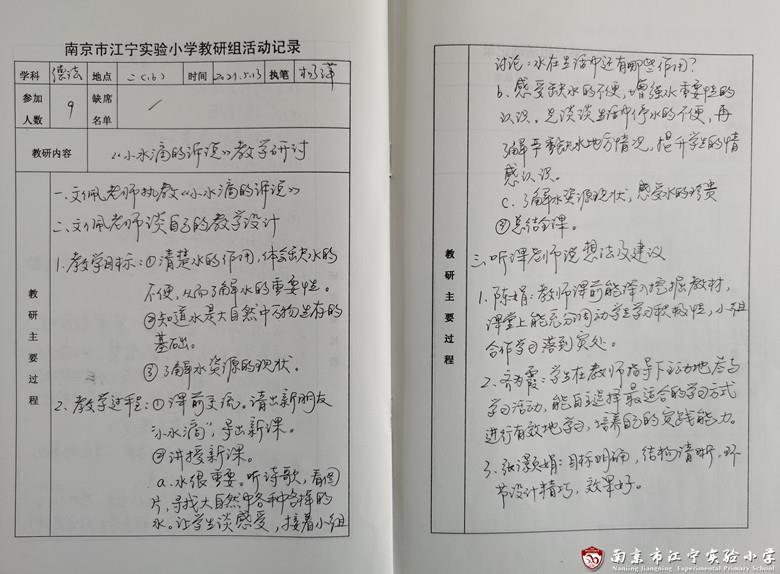 南京市江宁实验小学教研组活动记录
学科 德法 地点 二(1.6) 时间 2021.5.13 执笔
参加人数 9 缺席名单 /
教研内容 《小水滴的诉说》教学研讨
教研主要过程
一、文佩老师执教《小水滴的诉说》
二、文佩老师谈自己的教学设计
1.教学目标：①清楚水的作用，体会缺水的
不便，从而了解水的重要性。
②知道水是大自然中万物生存的
基础。
③了解水资源的现状。
2.教学过程：①课前交流。请出新朋友
"小水滴"，导出新课。
②讲授新课。
a.水很重要。听诗歌，看图
片，寻找大自然中各种各样的
水。让学生谈感受，接着小组
讨论：水在生活中还有哪些作用？
b.感受缺水的不便，增强水重要性的
认识。先谈谈生活中停水的不便，再
了解严重缺水地方情况，提升学生的情
感认识。
c.了解水资源现状，感受水的珍贵
③总结全课。
教研主要过程
三、听课老师说想法及建议
1.陈娟：教师课前能深入挖掘教材，
课堂上能充分调动学生学习积极性，小组
合作学习落到实处。
2.齐秀霞：学生在教师指导下主动地参与
学习活动，能自主选择最适合的学习方式
进行有效地学习，培养自己的实践能力。
3.张灏娟：目标明确，结构清晰，环
节设计精巧，效果好。
南京市江宁实验小学
Nanjing Jiangning Experimental Primary School